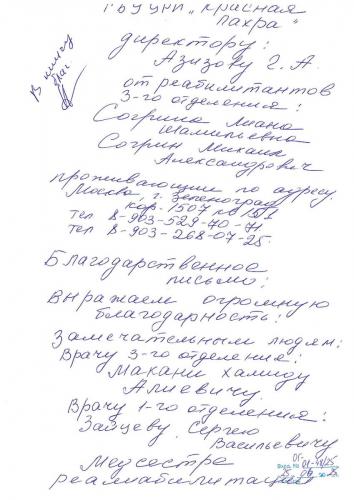 ГБУ УРЦ „Красная
Пахра"
директору:
Азизову Г. А.
от реабилитантов
3-го отделения:
Согрина Лиана
Шамильевна
Согрин Михаил
Александрович
проживающим по адресу:
Москва, г. Зеленоград
кор. 1507
тел 8-903-529-70-71
тел 8-903-268-07-25.
В книгу
благ
Благодарственное
письмо:
выражаем огромную
благодарность:
Замечательным людям:
Врачу 3-го отделения:
Макани Халиду
Алиевичу.
Врачу 1-го отделения:
Зайцеву Сергею
Васильевичу
Медсестре
реабилитации
Вход. №